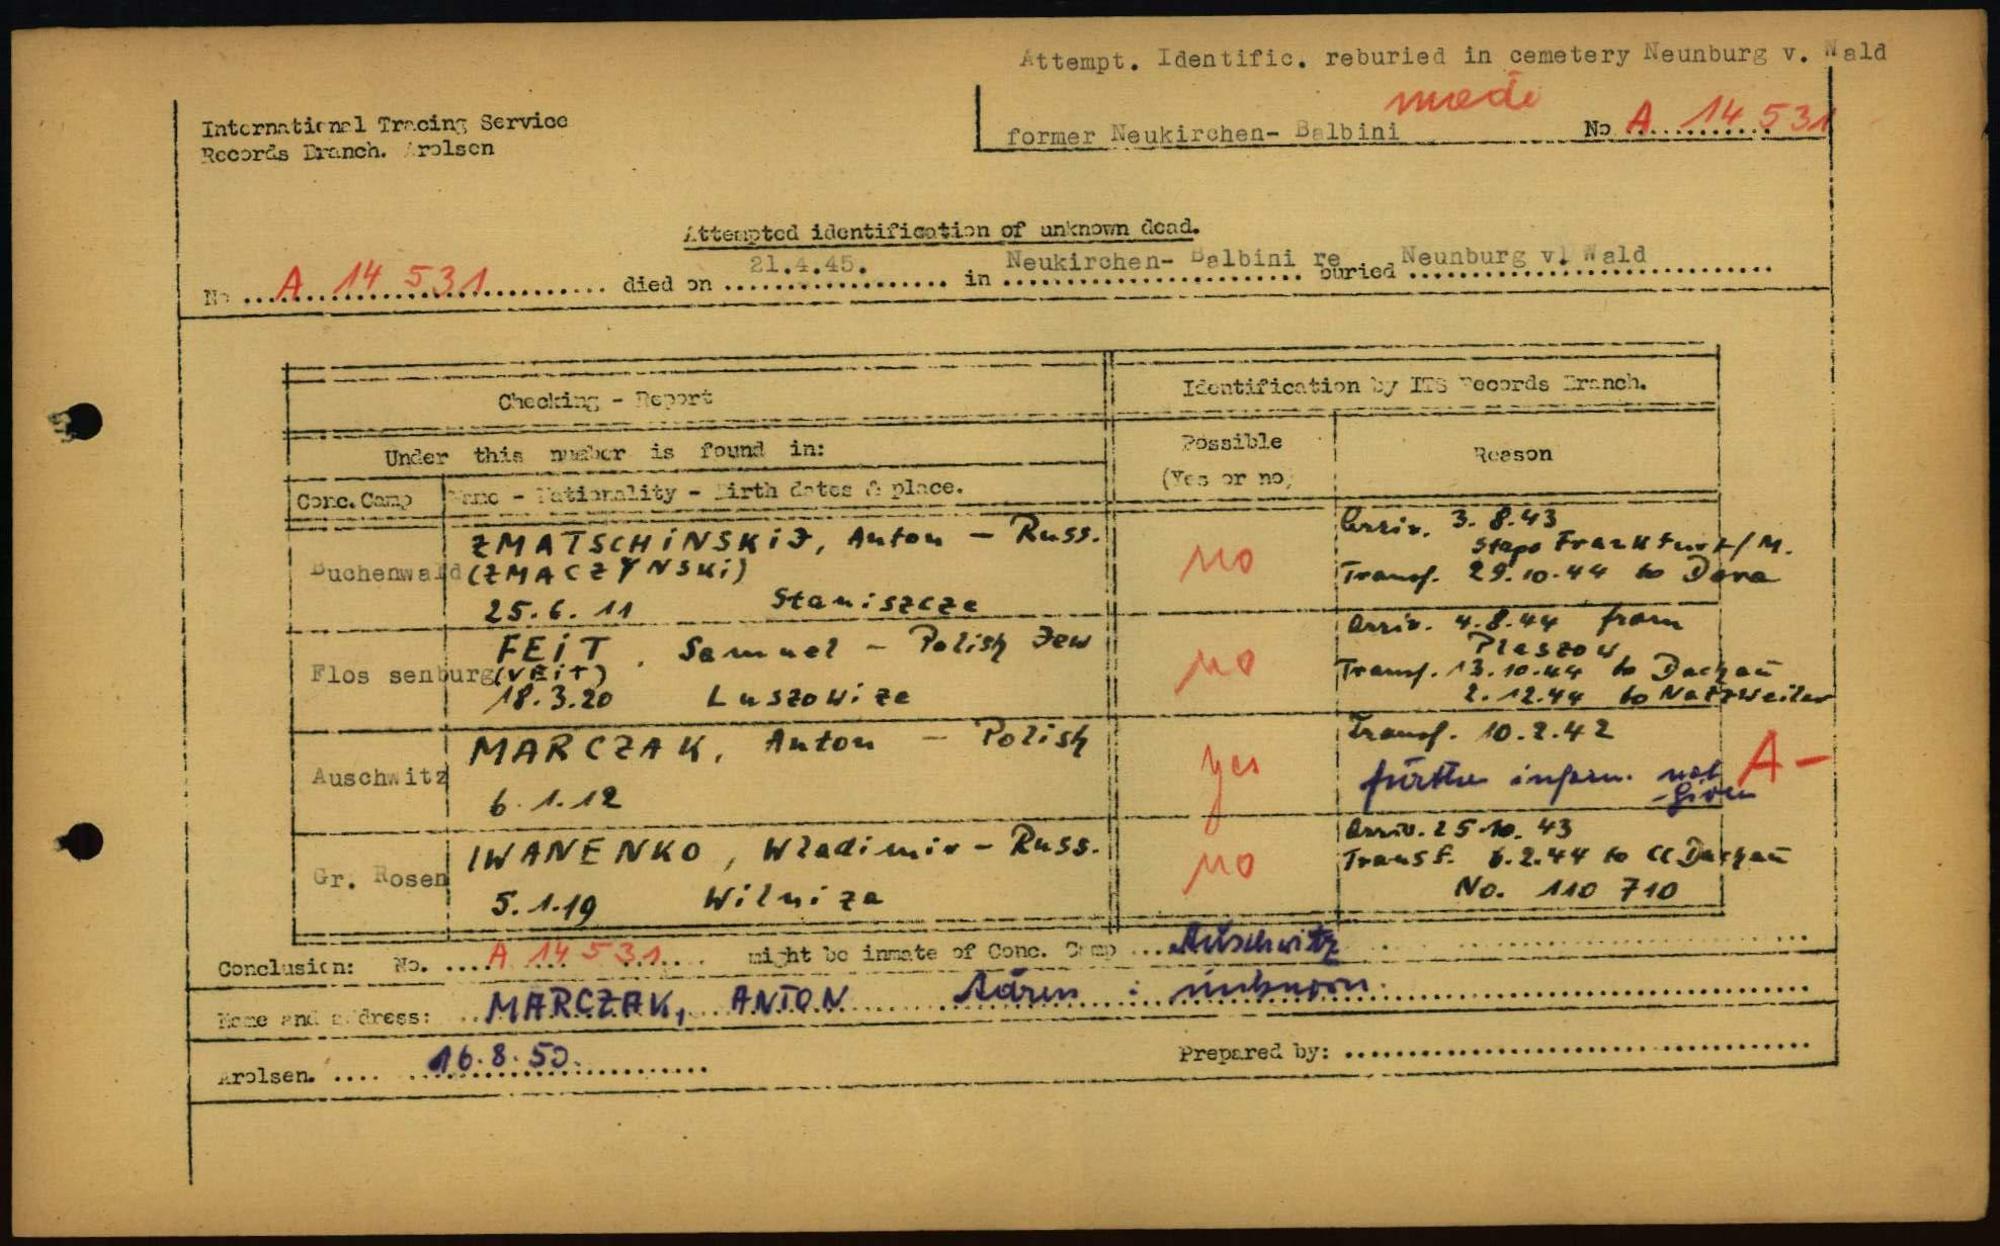 Attempt. Identific. reburied in cemetery Neunburg v. Wald
made
former Neukirchen- Balbini No A 14 531
International Tracing Service
Records Branch. Arolsen
Attempted identification of unknown dead.
No A 14 531 died on 21.4.45. in Neukirchen- Balbini re buried Neunburg v. Wald
Checking - Report
Identification by ITS Records Branch.
Under this number is found in:
Possible
(Yes or no)
Reason
Conc. Camp
Name - Nationality - Birth dates & place.
Buchenwald
ZMATSCHINSKIJ, Anton - Russ.
(ZMACZYNSKI)
25.6.11 Staniszcze
no
Arriv. 3.8.43
Stapo Frankfurt/M.
Transf. 29.10.44 to Dora
Flossenburg
FEIT, Samuel - Polish Jew
(VEIT)
18.3.20 Luszowize
no
Arriv. 4.8.44 from
Plaszow
Transf. 13.10.44 to Dachau
2.12.44 to Natzweiler
Auschwitz
MARCZAK, Anton - Polish
6.1.12
yes
Transf. 10.2.42
further inform. not
given
A-
Gr. Rosen
IWANENKO, Wladimir - Russ.
5.1.19 Wilniza
no
Arriv. 25.10.43
Transf. 6.2.44 to CC Dachau
No. 110 710
Conclusion: No. A 14 531 might be inmate of Conc. Camp Auschwitz
Name and address: MARCZAK, ANTON Adress : unknown.
Arolsen. 16.8.50. Prepared by: